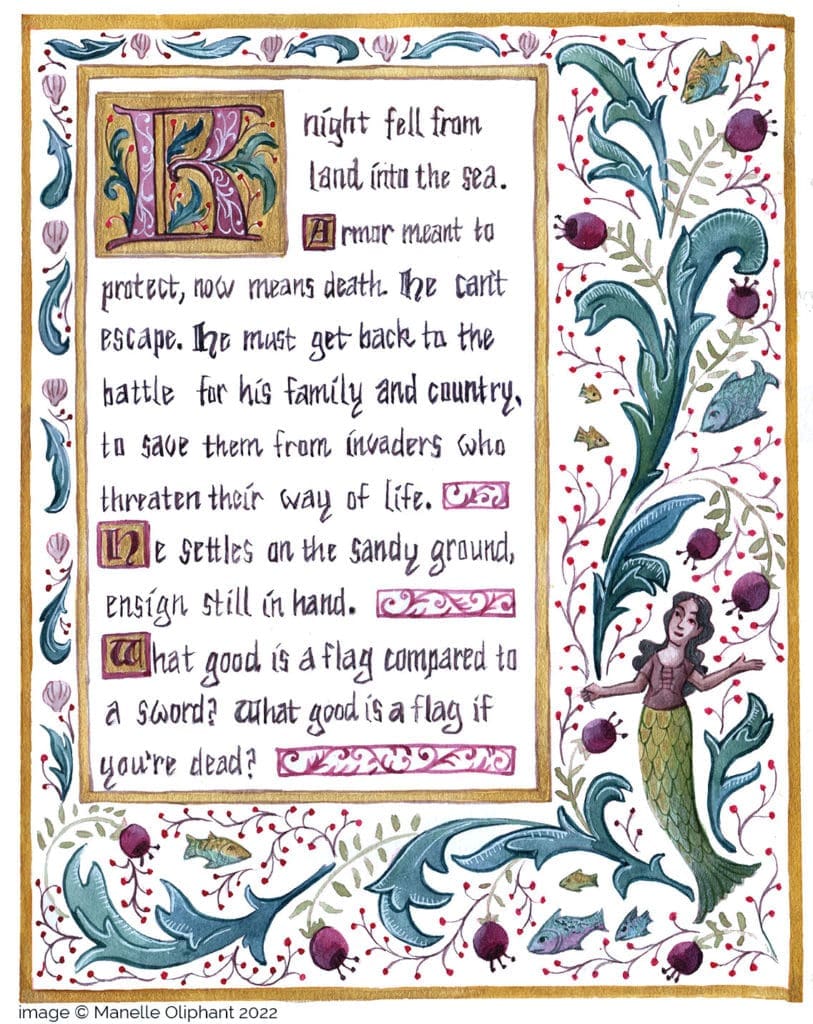 Knight fell from
land into the sea.
Armor meant to
protect, now means death. He can't
escape. He must get back to the
battle for his family and country,
to save them from invaders who
threaten their way of life.
He settles on the sandy ground,
ensign still in hand.
What good is a flag compared to
a sword? What good is a flag if
you're dead?
image © Manelle Oliphant 2022